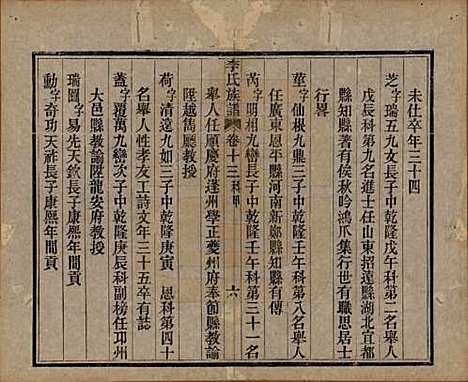 未仕卒年三十四
芝字瑞五九文長子中乾隆戊午科第二名舉人
戊辰科第九名進士任山東招遠縣湖北宜都
縣知縣著有侯秋吟鴻爪集行世有職思居士
行畧
茞字仙根九鼎三子中乾隆壬午科第八名舉人
任廣東恩平縣河南新鄭縣知縣有傳
芮字明相九巒長子中乾隆壬午科第三十一名
舉人任順慶府蓬州學正夔州府奉節縣教諭
陞越嶲廳教授
李氏族譜 卷十三 科甲 六
荷字清遠九如三子中乾隆庚寅 恩科第四十
名舉人性孝友工詩文年三十五卒有誌
蓋字覆萬九巒次子中乾隆庚辰科副榜任邛州
大邑縣教諭陞龍安府教授
瑞圖字易先天欽長子康熙年間貢
動字奇功天祚長子康熙年間貢